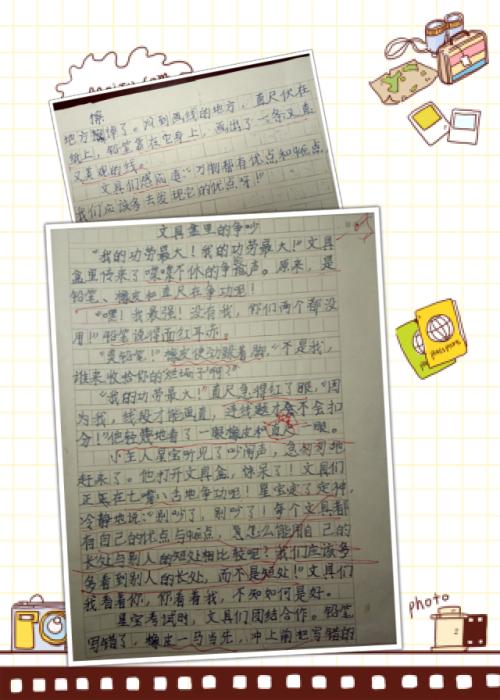 惊
地方擦掉了。用到画线的地方，直尺伏在
纸上，铅笔靠在它身上，画出了一条又直
又美观的线。
文具们感叹道：“万物都有优点和缺点，
我们应该多去发现它的优点呀！”
文具盒里的争吵
“我的功劳最大！我的功劳最大！”文具
盒里传来了喋喋不休的争论声。原来，是
铅笔、橡皮和直尺在争功呢！
“嘿！我最强！没有我，你们两个都没
用！”铅笔说得面红耳赤。
“臭铅笔！”橡皮使劲跺着脚，“不是我，
谁来收拾你的烂摊子啊？”
“我的功劳最大！”直尺急得红了眼，“因
为我，线段才能画直，连线题才会不会扣
分！”他轻蔑地看了一眼橡皮和一眼。
小主人星宝听见了吵闹声，急匆匆地
赶来了。他打开文具盒，惊呆了！文具们
正在七嘴八舌地争功呢！星宝定了定神，
冷静地说：“别吵了，别吵了！每个文具都
有自己的优点与缺点，是怎么能用自己的
长处与别人的短处相比较呢？我们应该多
多看到别人的长处，而不是短处！”文具们
我看着你，你看着我，不知如何是好。
星宝考试时，文具们团结合作。铅笔
写错了，橡皮一马当先，冲上前把写错的
passport
photo